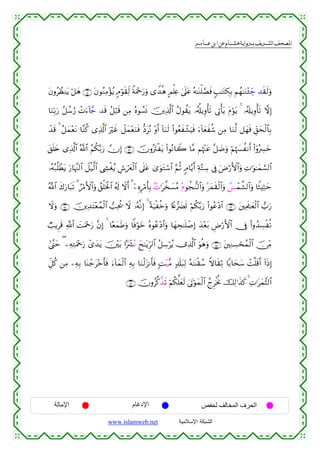 المصحف الشريف برواية هشام عن ابن عامر
وَلَقَدْ جِئْنَٰهُم بِكِتَٰبٍ فَصَّلْنَٰهُ عَلَىٰ عِلْمٍ هُدًى وَرَحْمَةً لِّقَوْمٍ يُؤْمِنُونَ ۝ هَلْ يَنظُرُونَ
إِلَّا تَأْوِيلَهُۥ ۚ يَوْمَ يَأْتِى تَأْوِيلُهُۥ يَقُولُ ٱلَّذِينَ نَسُوهُ مِن قَبْلُ قَدْ جَآءَتْ رُسُلُ رَبِّنَا
بِٱلْحَقِّ فَهَل لَّنَا مِن شُفَعَآءَ فَيَشْفَعُوا۟ لَنَآ أَوْ نُرَدُّ فَنَعْمَلَ غَيْرَ ٱلَّذِى كُنَّا نَعْمَلُ ۚ قَدْ
خَسِرُوٓا۟ أَنفُسَهُمْ وَضَلَّ عَنْهُم مَّا كَانُوا۟ يَفْتَرُونَ ۝ إِنَّ رَبَّكُمُ ٱللَّهُ ٱلَّذِى خَلَقَ
ٱلسَّمَٰوَٰتِ وَٱلْأَرْضَ فِى سِتَّةِ أَيَّامٍ ثُمَّ ٱسْتَوَىٰ عَلَى ٱلْعَرْشِ يُغْشِى ٱلَّيْلَ ٱلنَّهَارَ يَطْلُبُهُۥ
حَثِيثًا وَٱلشَّمْسُ وَٱلْقَمَرُ وَٱلنُّجُومُ مُسَخَّرَٰتٌۢ بِأَمْرِهِۦٓ ۗ أَلَا لَهُ ٱلْخَلْقُ وَٱلْأَمْرُ ۗ تَبَارَكَ ٱللَّهُ
رَبُّ ٱلْعَٰلَمِينَ ۝ ٱدْعُوا۟ رَبَّكُمْ تَضَرُّعًا وَخُفْيَةً ۚ إِنَّهُۥ لَا يُحِبُّ ٱلْمُعْتَدِينَ ۝ وَلَا
تُفْسِدُوا۟ فِى ٱلْأَرْضِ بَعْدَ إِصْلَٰحِهَا وَٱدْعُوهُ خَوْفًا وَطَمَعًا ۚ إِنَّ رَحْمَتَ ٱللَّهِ قَرِيبٌ
مِّنَ ٱلْمُحْسِنِينَ ۝ وَهُوَ ٱلَّذِى يُرْسِلُ ٱلرِّيَٰحَ نُشْرًۢا بَيْنَ يَدَىْ رَحْمَتِهِۦ ۖ حَتَّىٰٓ
إِذَآ أَقَلَّتْ سَحَابًا ثِقَالًا سُقْنَٰهُ لِبَلَدٍ مَّيْتٍ فَأَنزَلْنَا بِهِ ٱلْمَآءَ فَأَخْرَجْنَا بِهِۦ مِن كُلِّ
ٱلثَّمَرَٰتِ ۚ كَذَٰلِكَ نُخْرِجُ ٱلْمَوْتَىٰ لَعَلَّكُمْ تَذَّكَّرُونَ ۝
الحرف المخالف لحفص الإدغام الإمالة
الشبكة الإسلامية www.islamweb.net